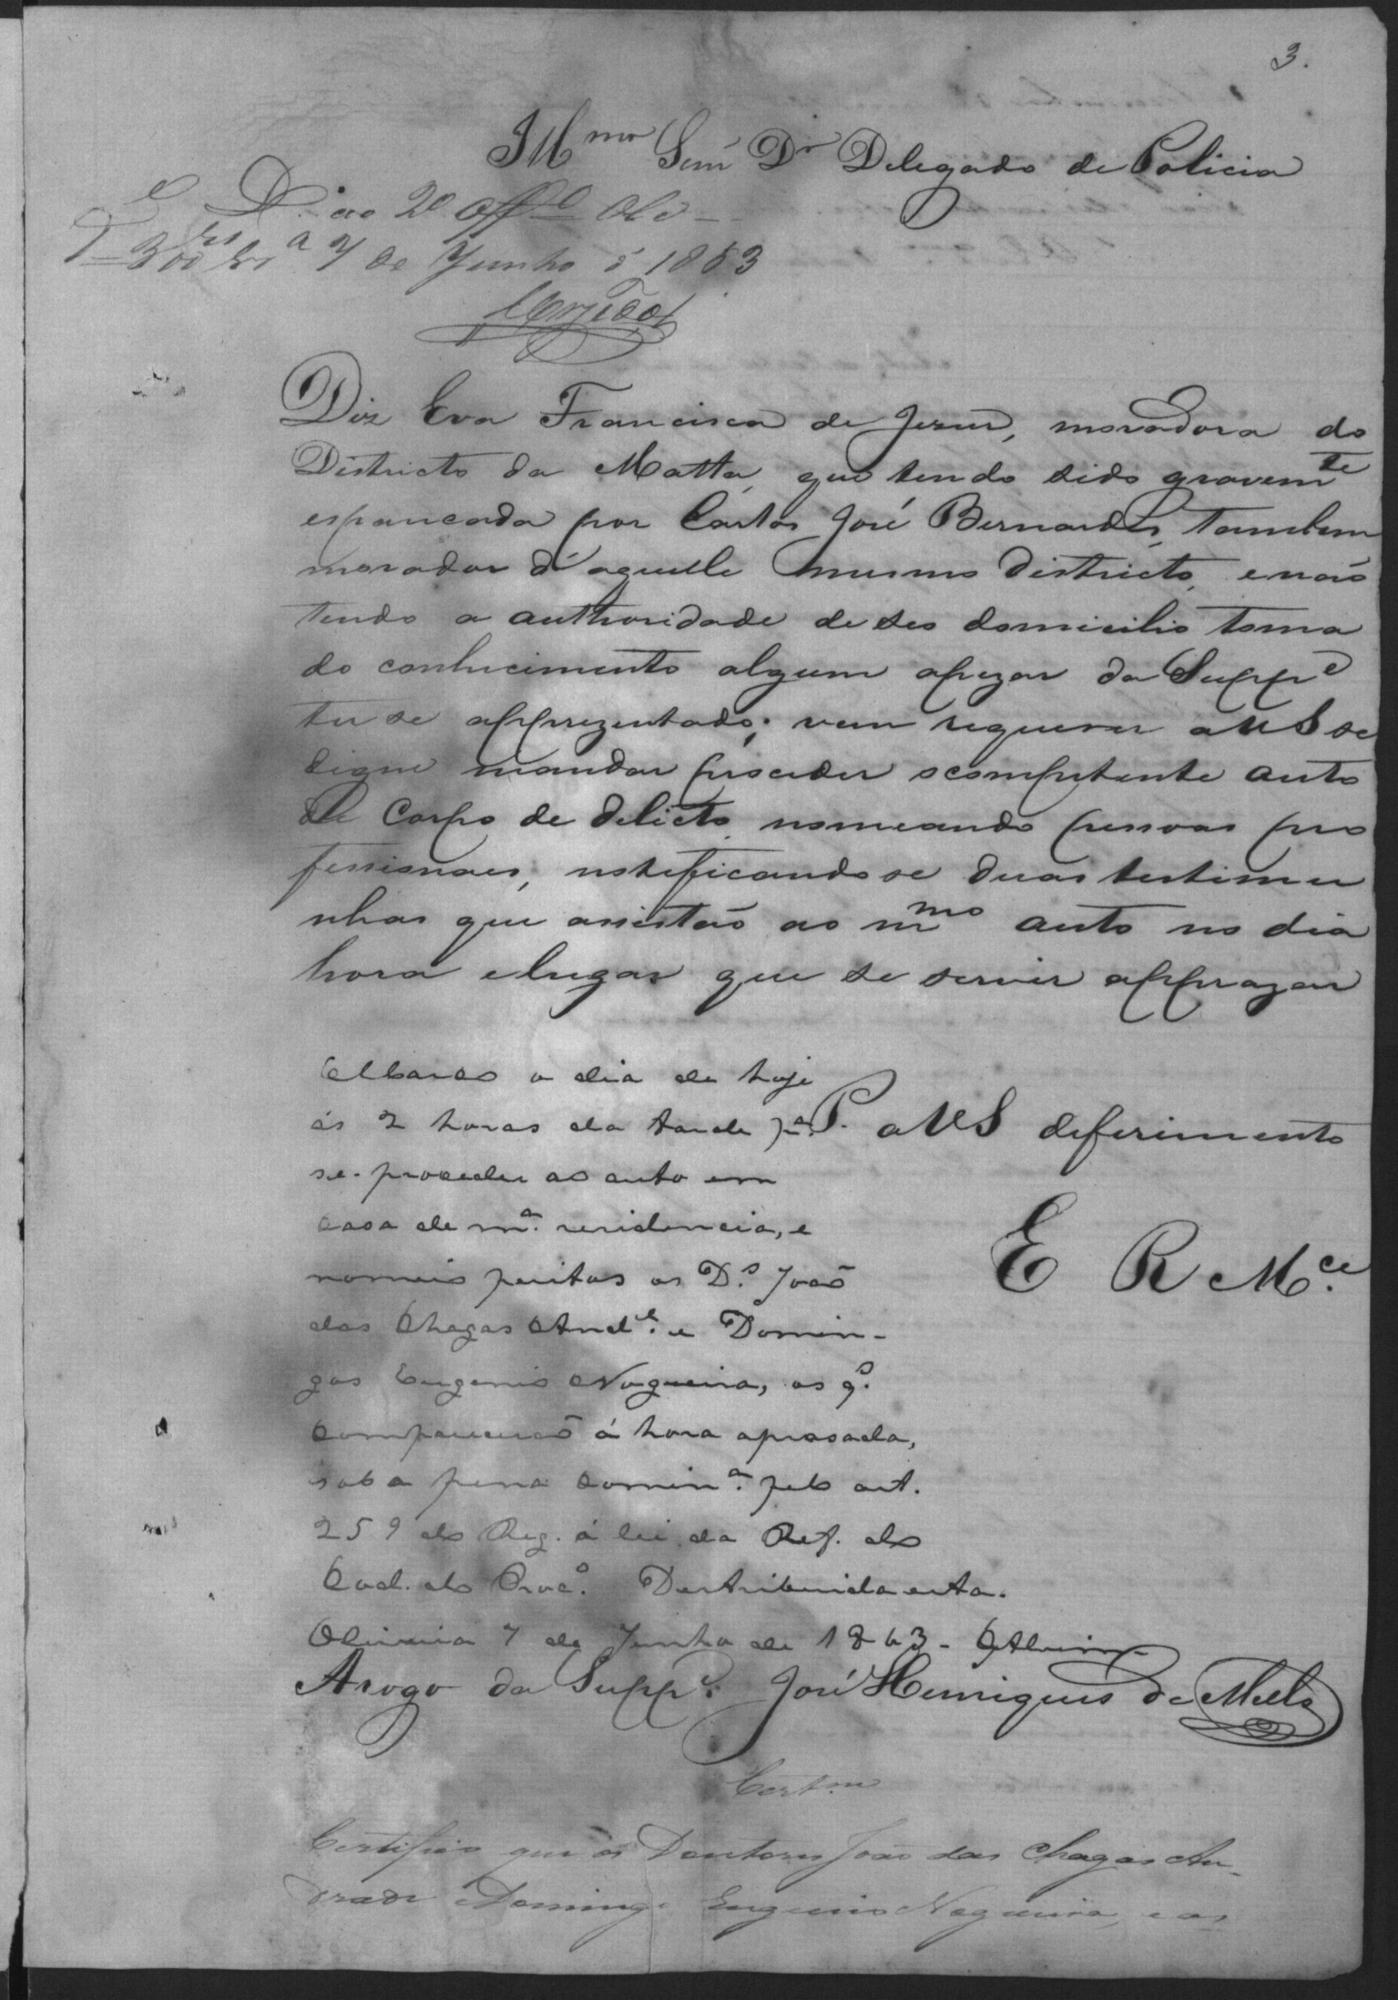 3.
Illmo Senr Dr Delegado de Policia
D. ao 2º offº Olivª
a 7 de Junho d 1883
Diz Eva Francisca de Jesus, moradora do
Districto da Matta, que tendo sido gravemte
espancada por Carlos José Bernardes, tambem
morador d'aquelle mesmo districto, enão
tendo a authoridade de seo domicilio toma
do conhecimento algum apezar da Suppe
ter se apprezentado; vem requerer a VS se
digne mandar proceder ocompetente auto
de Corpo de delicto, nomeando pessoas pro
fissionaes, notificandose duas testimu
nhas que assistão ao mmo auto no dia
hora elugar que se servir apprazar
P. a VS deferimento
E R Mce.
Marco o dia de hoje
ás 2 horas da tarde pª.
se proceder ao auto em
casa de mª. residencia, e
nomeio peritos os Drs. João
das Chagas Andre. e Domin-
gos Eugenio Nogueira, os qs.
comparecerão á hora aprasada,
sob a pena cominª. pelo art.
259 do Reg. á lei da Ref. do
Cod. do Proco. Destribuida esta.
Oliveira 7 de Junho de 1883-
Arogo da Suppe. José Henriques de Mello
Certam
Certifico que os Doutores João das Chagas An-
drade e Domingos Eugenio Nogueira, e as